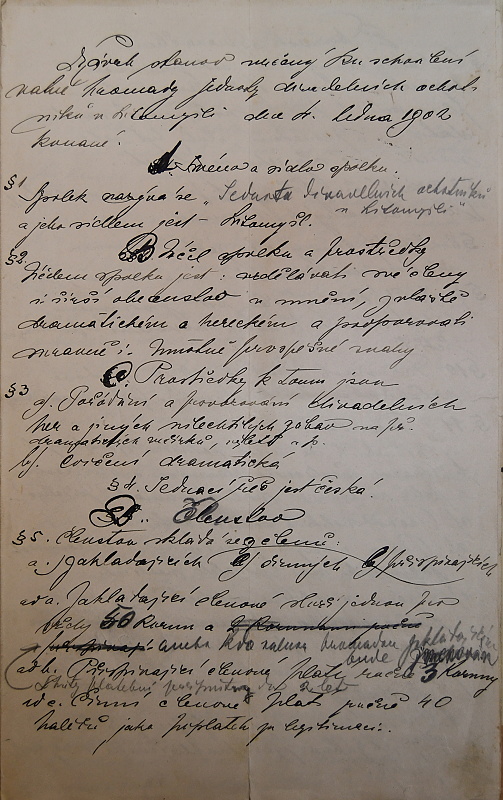 Návrh stanov určený ku schválení
valné hromady Jednoty divadelních ochot-
níků v Litomyšli dne 4. ledna 1902
konané.
A. Jméno a sídlo spolku.
§1
Spolek nazývá se „Jednota divadelních ochotníků
v Litomyšli"
a jeho sídlem jest Litomyšl.
§2. B. Účel spolku a prostředky
Účelem spolku jest: vzdělávati své členy
i širší obecenstvo v umění, zvláště
dramatickém a hereckém a podporovati
mravně i hmotně prospěšné snahy
C. Prostředky k tomu jsou
§3
a). Pořádání a provozování divadelních
her a jiných ušlechtilých zábav na př.
dramatických večírků, výletů a p.
b). cvičení dramatická
§4. Jednací řeč jest česká.
B. Členstvo
§5. Členstvo skládá se z členů:
a. zakládajících c) činných b) přispívajících
ad a. Zakládající členové složí jednou pro
vždy 50 korun a
anebo kdo valnou hromadou zakládajícím
bude jmenován
ad b. Přispívající členové platí ročně 3 koruny
ad c. Činní členové platí ročně 40
haléřů jako příplatek za legitimaci.